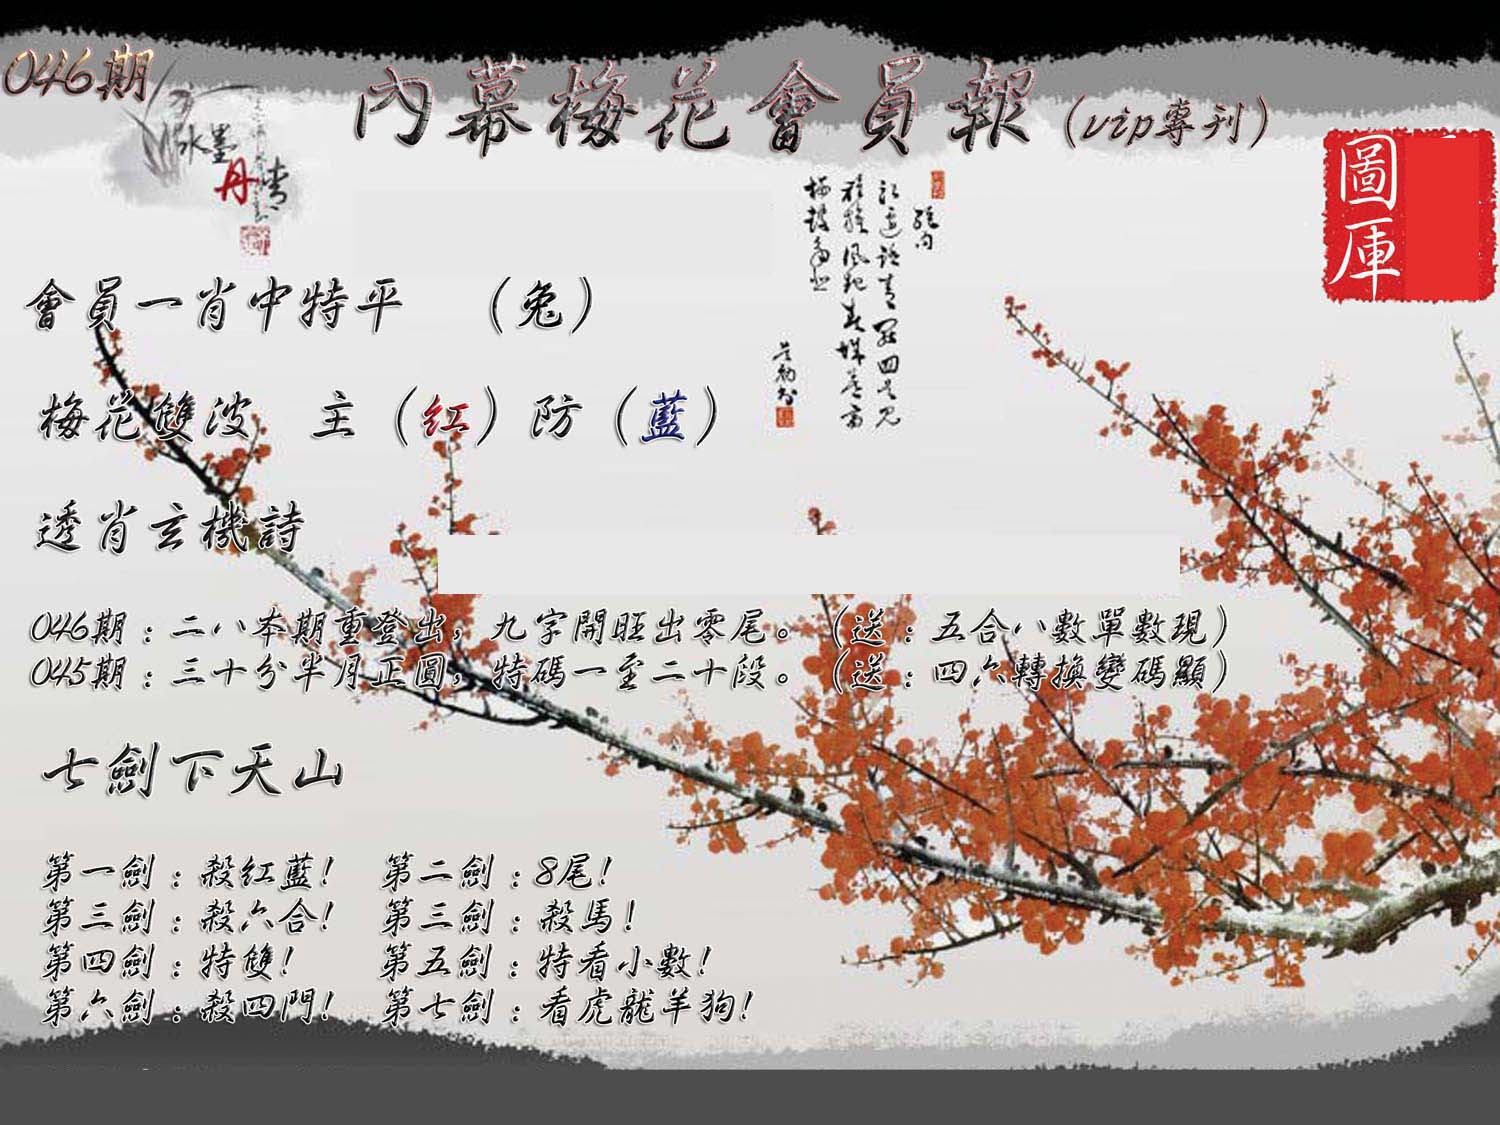 046期
內幕梅花會員報（vip專刊）
水墨
丹青
圖庫
會員一肖中特平　（兔）
梅花雙波　主（紅）防（藍）
透肖玄機詩
046期：二八本期重登出，九字開旺出零尾。（送：五合八數單數現）
045期：三十分半月正圓，特碼一至二十段。（送：四六轉換變碼顯）
七劍下天山
第一劍：殺紅藍！　第二劍：8尾！
第三劍：殺六合！　第三劍：殺馬！
第四劍：特雙！　第五劍：特看小數！
第六劍：殺四門！　第七劍：看虎龍羊狗！